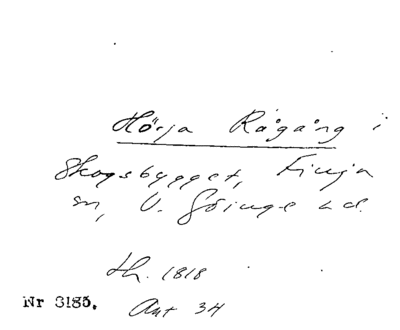 Hörja Rågång i
Skogsbygget, Finja
sn, V. Göinge hd.
th. 1818
Nr 3185. Avt 34